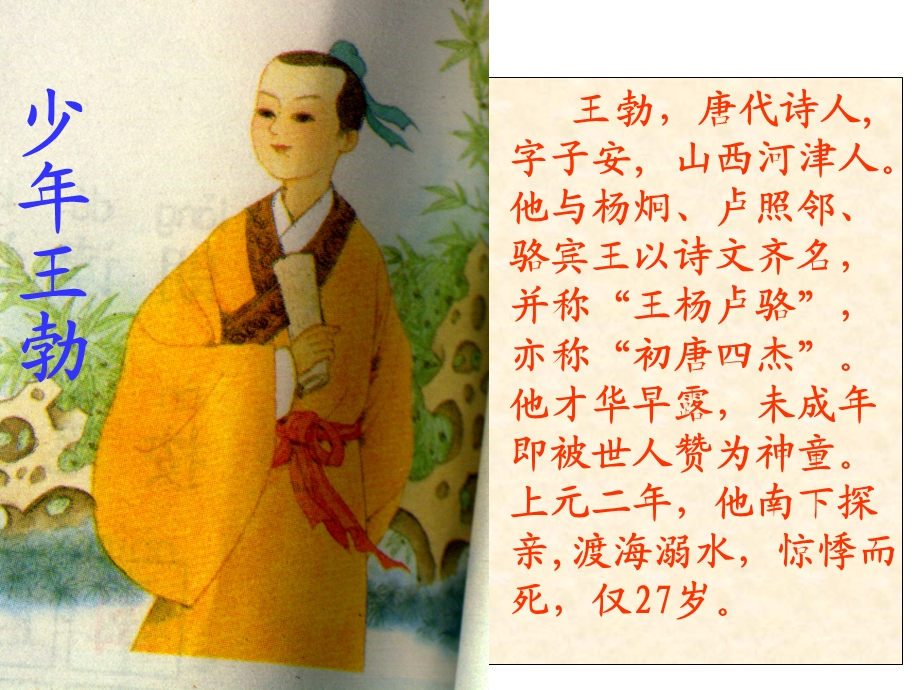 少年王勃
王勃，唐代诗人，
字子安，山西河津人。
他与杨炯、卢照邻、
骆宾王以诗文齐名，
并称“王杨卢骆”，
亦称“初唐四杰”。
他才华早露，未成年
即被世人赞为神童。
上元二年，他南下探
亲,渡海溺水，惊悸而
死，仅27岁。